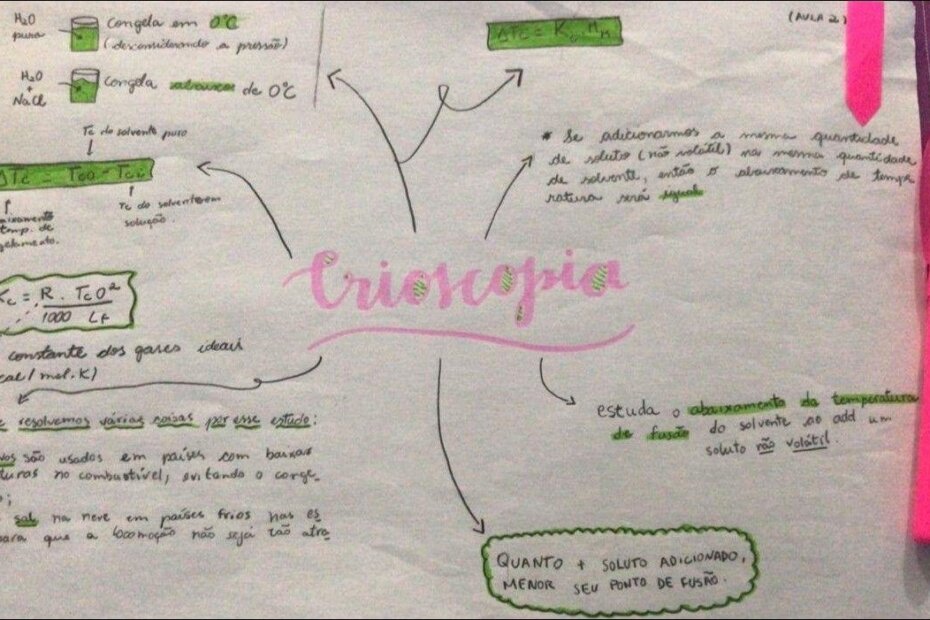 H₂O
pura
congela em 0°C
(desconsiderando a pressão)
H₂O
+
NaCl
congela abaixo de 0°C
ΔTc = Kc . M
(AULA 2)
Tc do solvente puro
ΔTc = Tc0 - Tc
Tc do solvente em
solução.
temp. de
* Se adicionarmos a mesma quantidade
de soluto (não volátil) na mesma quantidade
de solvente, então o abaixamento de tempe
ratura será igual
Crioscopia
= R . Tc0²
1000 Lf
constante dos gases ideais
cal/mol.K)
resolvemos várias coisas por esse estudo:
são usados em países com baixas
turas no combustível, evitando o conge-
sal na neve em países frios nas es
para que a locomoção não seja tão atra-
estuda o abaixamento da temperatura
de fusão do solvente ao add um
soluto não volátil.
QUANTO + SOLUTO ADICIONADO,
MENOR SEU PONTO DE FUSÃO.